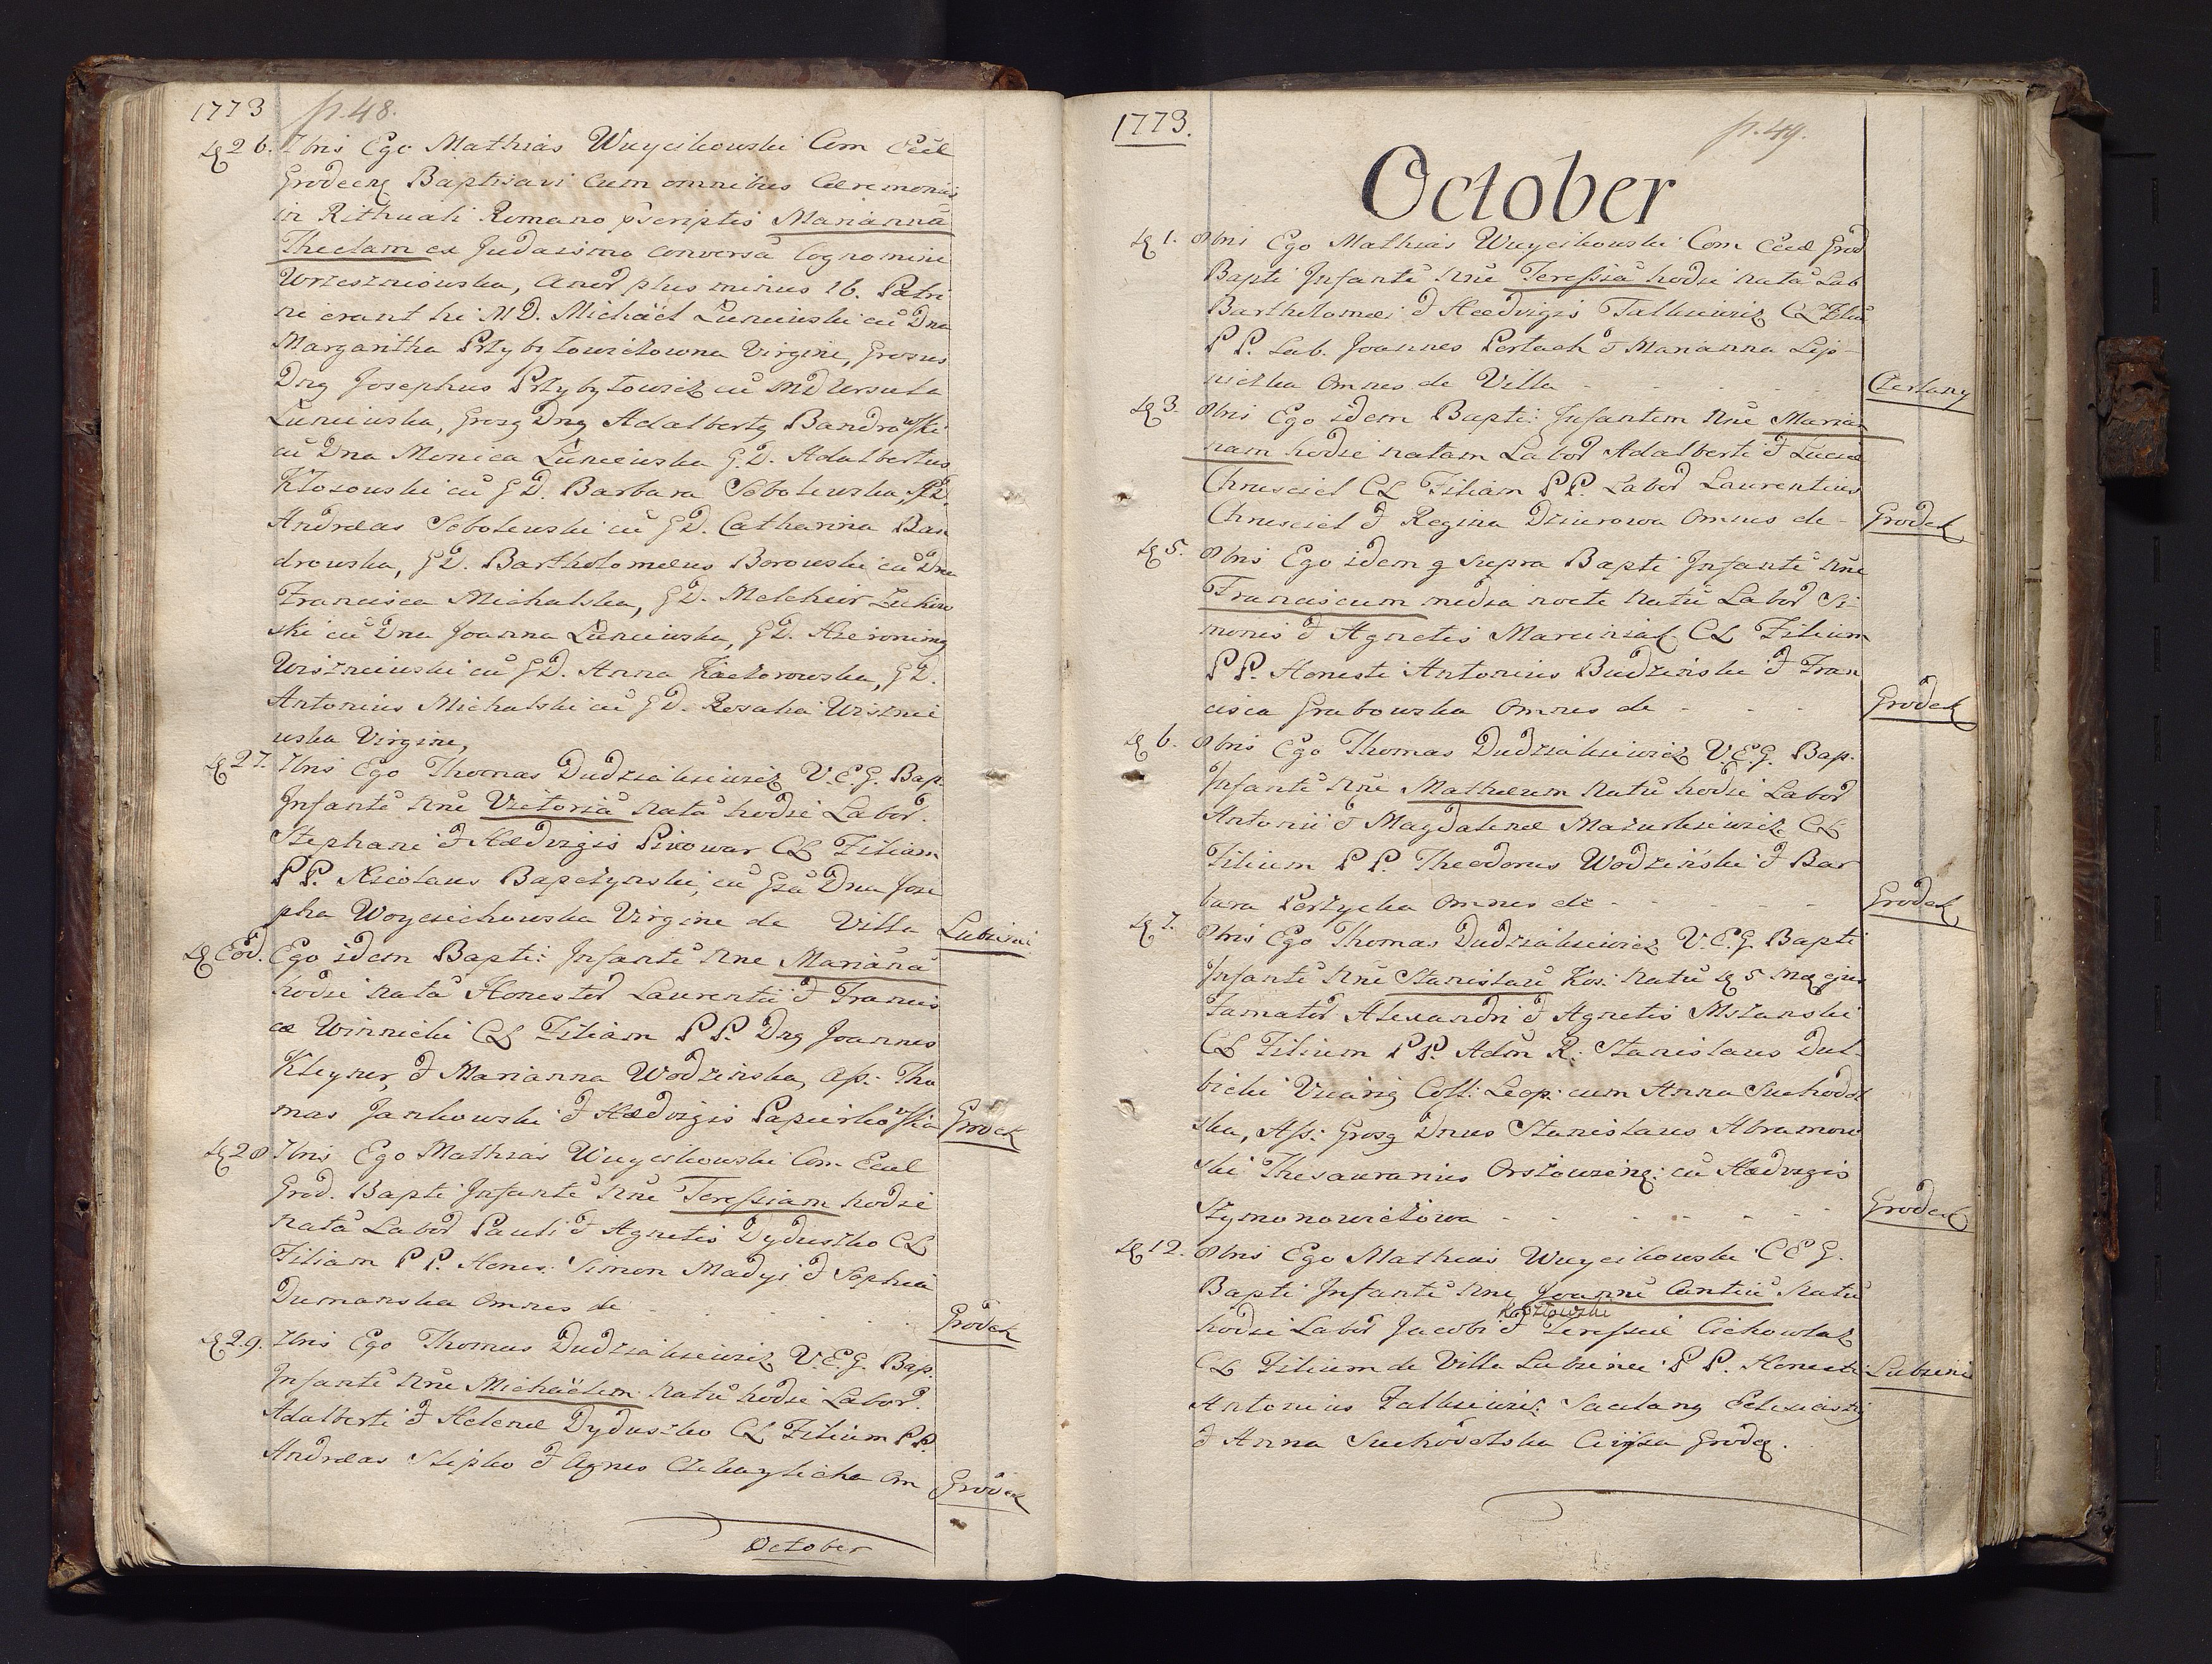 1773 p. 48.
26. 7bris Ego Mathias Wuycikowski Com Eccl
Grodecz Baptisavi Cum omnibus Caeremoniis
in Rithuali Romano pscriptis Mariannā
Theclam ex Judaismo conversā Cognomine
Wrzesniowska, plus minus 16. Patri
ni erant hi MD. Michael Luniewski cū Dna
Margaritha Przybyłowiczowna Virgine, Grosus
Dnq Josephus Przybyłowicz cū MD Ursula
Luniewska, Grosq Dnq Adalbertq Bandrowski
cū Dna Monica Luniewska G.D. Adalbertus
Kłosowski cū GD. Barbara Sobolewska, GD.
Andreas Sobolewski cū GD. Catharina Ban
drowska, GD. Bartholomeus Borowski cū Dna
Francisca Michalska, GD. Melchior Zukow
ski cū Dna Joanna Luniewska, GD. Hieronimq
Wiszniewski cū GD. Anna Kaczorowska, GD.
Antonius Michalski cū GD. Rosalia Wisznie
wska Virgine,
27. 7bris Ego Thomas Dudziakiewicz V.E.G. Bap.
Infantē Nne Victoriā natā hodie Labor.
Stephani & Hedvigis Piwowar CL Filiam
PP. Nicolaus Bapczynski, cū Gsa Dna Jose
pha Woyciechowska Virgine de Villa Lubieni
Eod. Ego idem Bapti: Infantē Nne Mariānā
hodie natā Honestor Laurentii & Francis
cæ Winnicki CL Filiam PP. Dnq Joannes
Kleyner, & Marianna Wodzinska, As: Tho
mas Jankowski & Hedvigis Papierkowska Grodek
28 7bris Ego Mathias Wuycikowski Com Eccl
Grod. Bapti Infantē Nne Teressiam hodie
natā Labor Pauli & Agnetis Dyduszko CL
Filiam PP. Hones: Simon Madys & Sophia
Dumanska Omnes de - - - Grodek
29. 7bris Ego Thomas Dudziakiewicz V.E.G. Bap.
Infantē Nne Michaëlem natū hodie Labor.
Adalberti & Helenæ Dyduszko CL Filium PP
Andreas Slipko & Agnes Om Grodek
October
1773. p. 49.
October
1. 8bris Ego Mathias Wuycikowski Com Eccl Grod
Bapti Infantē Nne Teressiā hodie natā Lab
Bartholomei & Hedvigis Falkiewicz CL Filiā
PP. Lab. Joannes Pertach & Marianna Lip-
niczka Omnes de Villa - - - Czerlany
3. 8bris Ego idem Bapti: Infantem Nne Marian
nam hodie natam Labor Adalberti & Luciæ
Chrusciel CL Filiam PP. Labor Laurentius
Chrusciel & Regina Dziurowa Omnes de - Grodek
5. 8bris Ego idem q supra Bapti Infantē Nne
Franciscum media nocte natū Labor Si-
monis & Agnetis Marciniak CL Filium
PP. Honesti Antonius Budzinski & Fran
cisca Grabowska Omnes de - - - Grodek
6. 8bris Ego Thomas Dudziakiewicz V.E.G. Bap.
Infantē Nne Mathæum natū hodie Labor
Antonii & Magdalenæ Mazurkiewicz CL
Filium PP. Theodorus Wodzinski & Bar
bara Perzycka Omnes de - - - Grodek
7. 8bris Ego Thomas Dudziakiewicz V.E.G. Bapti
Infantē Nne Stanislaū Kos: natū 5 Mq ejus
Famator Alexandri & Agnetis Mszanski
CL Filium PP. Adm R. Stanislaus Dul-
bicki Vicariq Coll: Leop: cum Anna Suchodol
ska, Ass: Grosq Dnus Stanislaus Abramow
ski Thesaurarius cū Hedvigis
Szymonowiczowa - - - Grodek
12. 8bris Ego Mathias Wuycikowski C E G.
Bapti Infantē Nne Joannē Cantiū natū
Kozłowski
hodie Labor Jacobi & Teressiæ Cichowlaz
CL Filium de Villa Lubienie PP. Honesti Lubieni
Antonius Falkiewicz Sacelanq Eclesiastiq
& Anna Suchodolska Civissa Grodeq.